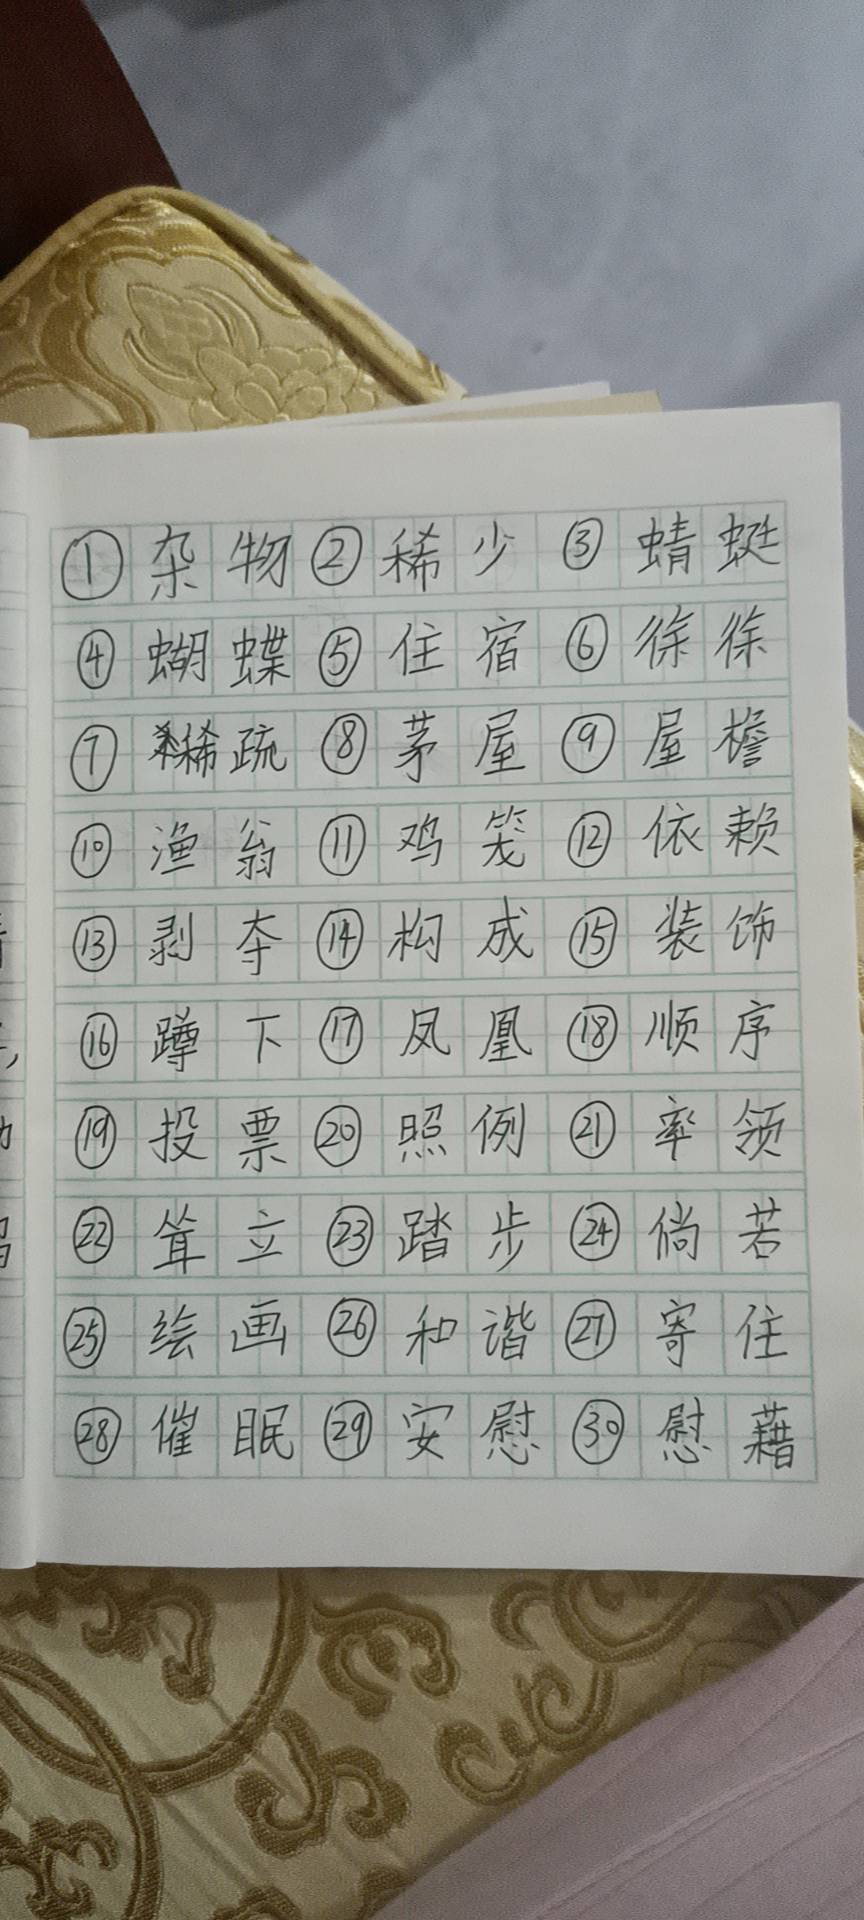 ①杂物②稀少③蜻蜓
④蝴蝶⑤住宿⑥徐徐
⑦稀疏⑧茅屋⑨屋檐
⑩渔翁⑪鸡笼⑫依赖
⑬剥夺⑭构成⑮装饰
⑯蹲下⑰凤凰⑱顺序
⑲投票⑳照例㉑率领
㉒耸立㉓踏步㉔倘若
㉕绘画㉖和谐㉗寄住
㉘催眠㉙安慰㉚慰藉